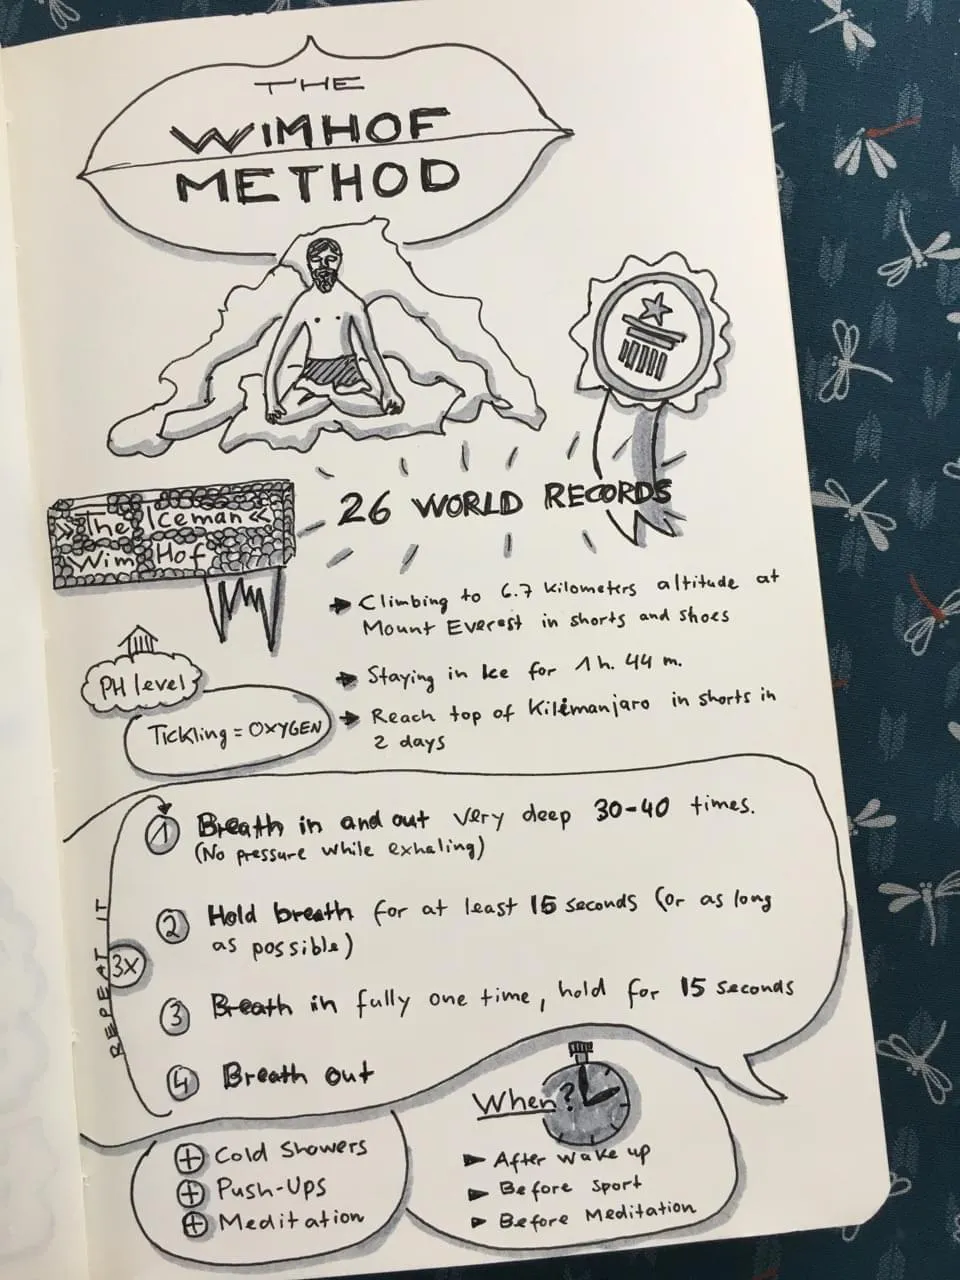 THE
WIMHOF
METHOD
» The Iceman «
Wim Hof
26 WORLD RECORDS
Climbing to 6.7 kilometers altitude at
Mount Everest in shorts and shoes
Staying in Ice for 1h. 44 m.
Reach top of Kilimanjaro in shorts in
2 days
PH level
Tickling = OXYGEN
REPEAT IT
3x
1 Breath in and out very deep 30-40 times.
(No pressure while exhaling)
2 Hold breath for at least 15 seconds (or as long
as possible)
3 Breath in fully one time, hold for 15 seconds
4 Breath out
+ Cold Showers
+ Push-Ups
+ Meditation
When?
After wake up
Before sport
Before Meditation